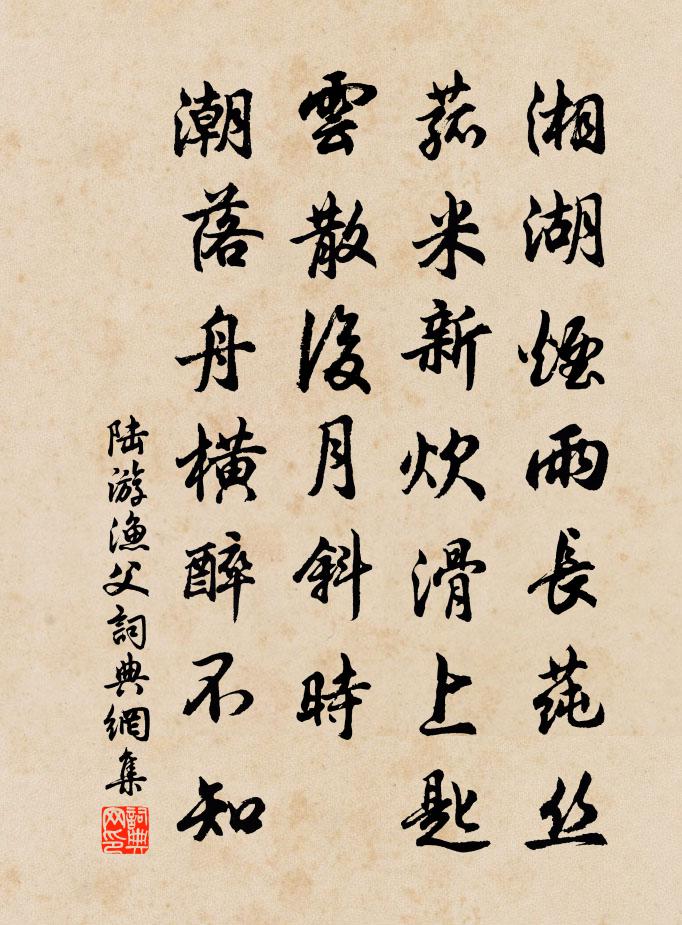 湘湖煙雨長蒓丝
菰米新炊滑上匙
雲散後月斜時
潮落舟橫醉不知
陆游漁父詞典網集
詞典
网印